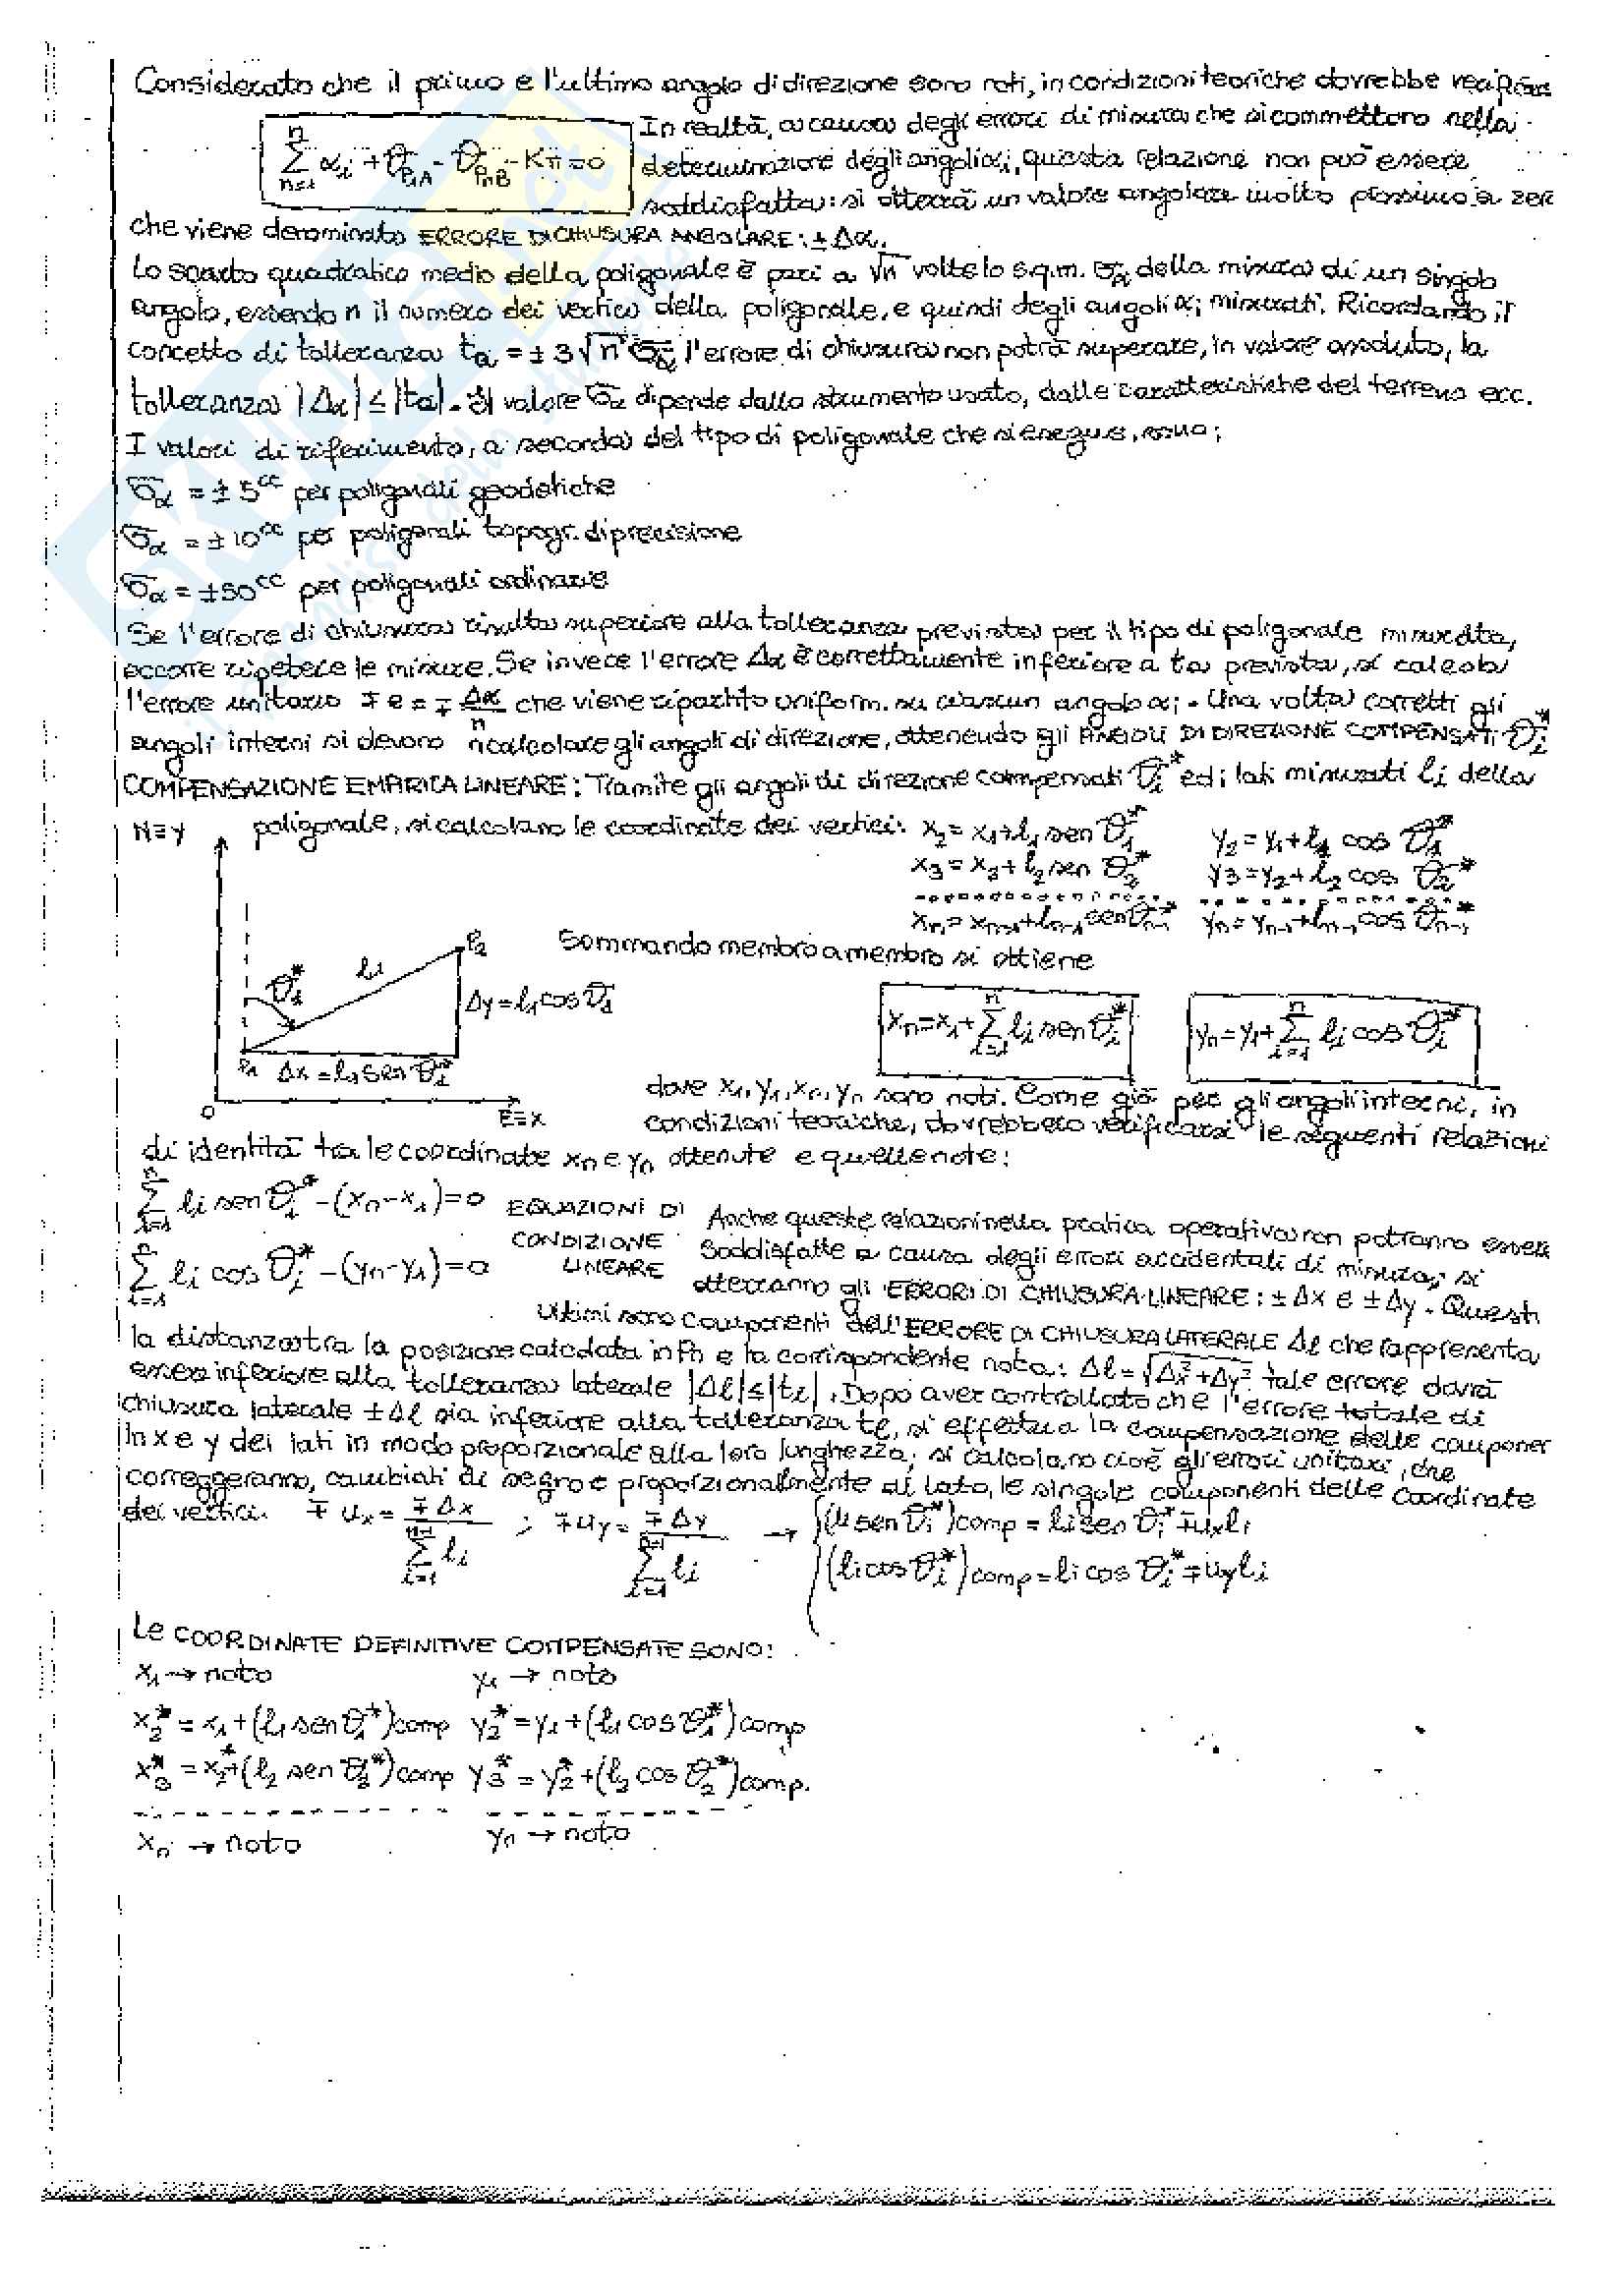 Considerato che il primo e l'ultimo angolo di direzione sono noti, in condizioni teoriche dovrebbe
∑ αi + ϑP1A - ϑPnB - Kπ = 0
In realtà, a causa degli errori di misura che si commettono nella
determinazione degli angoli αi, questa relazione non può essere
soddisfatta: si otterrà un valore angolare molto prossimo a zer
che viene denominato ERRORE DI CHIUSURA ANGOLARE: ± Δα.
Lo scarto quadratico medio della poligonale è pari a √n volte lo s.q.m. σα della misura di un singolo
angolo, essendo n il numero dei vertici della poligonale, e quindi degli angoli αi misurati. Ricordando il
concetto di tolleranza tα = ± 3√n σα l'errore di chiusura non potrà superare, in valore assoluto, la
tolleranza |Δα| ≤ |tα|. Il valore σα dipende dallo strumento usato, dalle caratteristiche del terreno ecc.
I valori di riferimento, a seconda del tipo di poligonale che si esegue, sono:
σα = ± 5cc per poligonali geodetiche
σα = ± 10cc per poligonali topogr. di precisione
σα = ± 50cc per poligonali ordinarie
Se l'errore di chiusura risulta superiore alla tolleranza prevista per il tipo di poligonale misurata,
occorre ripetere le misure. Se invece l'errore Δα è correttamente inferiore a tα prevista, si calcola
l'errore unitario ∓ e = ∓ Δα/n che viene ripartito uniform. su ciascun angolo αi. Una volta corretti gli
angoli interni si devono ricalcolare gli angoli di direzione, ottenendo gli ANGOLI DI DIREZIONE COMPENSATI ϑi*
COMPENSAZIONE EMPIRICA LINEARE: Tramite gli angoli di direzione compensati ϑi* ed i lati misurati li della
poligonale, si calcolano le coordinate dei vertici: x2 = x1 + l1 sen ϑ1* y2 = y1 + l1 cos ϑ1*
N≡Y
x3 = x2 + l2 sen ϑ2* y3 = y2 + l2 cos ϑ2*
xn = xn-1 + ln-1 sen ϑn-1* yn = yn-1 + ln-1 cos ϑn-1*
Sommando membro a membro si ottiene
P2
li
ϑ1*
Δy = l1 cos ϑ1
P1 Δx = l1 sen ϑ1*
O
E≡X
xn = x1 + ∑ⁿi=1 li sen ϑi* yn = y1 + ∑ⁿi=1 li cos ϑi*
dove x1, y1, xn, yn sono noti. Come già per gli angoli interni, in
condizioni teoriche, dovrebbero verificarsi le seguenti relazioni
di identità tra le coordinate xn e yn ottenute e quelle note:
∑ⁿi=1 li sen ϑi* - (xn - x1) = 0
∑ⁿi=1 li cos ϑi* - (yn - y1) = 0
EQUAZIONI DI
CONDIZIONE
LINEARE
Anche queste relazioni nella pratica operativa non potranno essere
soddisfatte a causa degli errori accidentali di misura, si
otterranno gli ERRORI DI CHIUSURA LINEARE: ± Δx e ± Δy. Questi
ultimi sono componenti dell'ERRORE DI CHIUSURA LATERALE Δl che rappresenta
la distanza tra la posizione calcolata in Pn e la corrispondente nota: Δl = √Δx² + Δy² tale errore dovrà
essere inferiore alla tolleranza laterale |Δl| ≤ |tl|. Dopo aver controllato che l'errore totale di
chiusura laterale ± Δl sia inferiore alla tolleranza tl, si effettua la compensazione delle componen
in x e y dei lati in modo proporzionale alla loro lunghezza; si calcolano cioè gli errori unitari, che
correggeranno, cambiati di segno e proporzionalmente al lato, le singole componenti delle coordinate
dei vertici. ∓ ux = ∓ Δx / ∑ⁿ⁻¹i=1 li ; ∓ uy = ∓ Δy / ∑ⁿ⁻¹i=1 li → (li sen ϑi*)comp = li sen ϑi* ∓ ux li
(li cos ϑi*)comp = li cos ϑi* ∓ uy li
Le COORDINATE DEFINITIVE COMPENSATE SONO:
x1 → noto y1 → noto
x2* = x1 + (l1 sen ϑ1*)comp y2* = y1 + (l1 cos ϑ1*)comp
x3* = x2* + (l2 sen ϑ2*)comp y3* = y2* + (l2 cos ϑ2*)comp.
xn → noto yn → noto